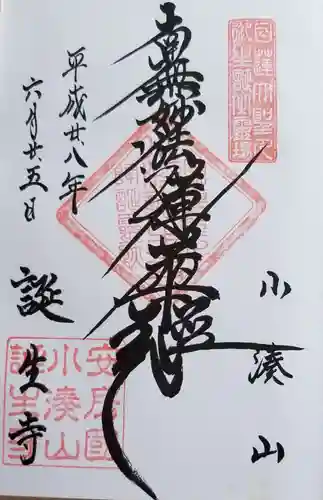 日蓮大聖人
御生誕霊場
小湊山
南無妙法蓮華経
平成廿八年
六月廿五日
誕生寺
安房国
小湊山
誕生寺